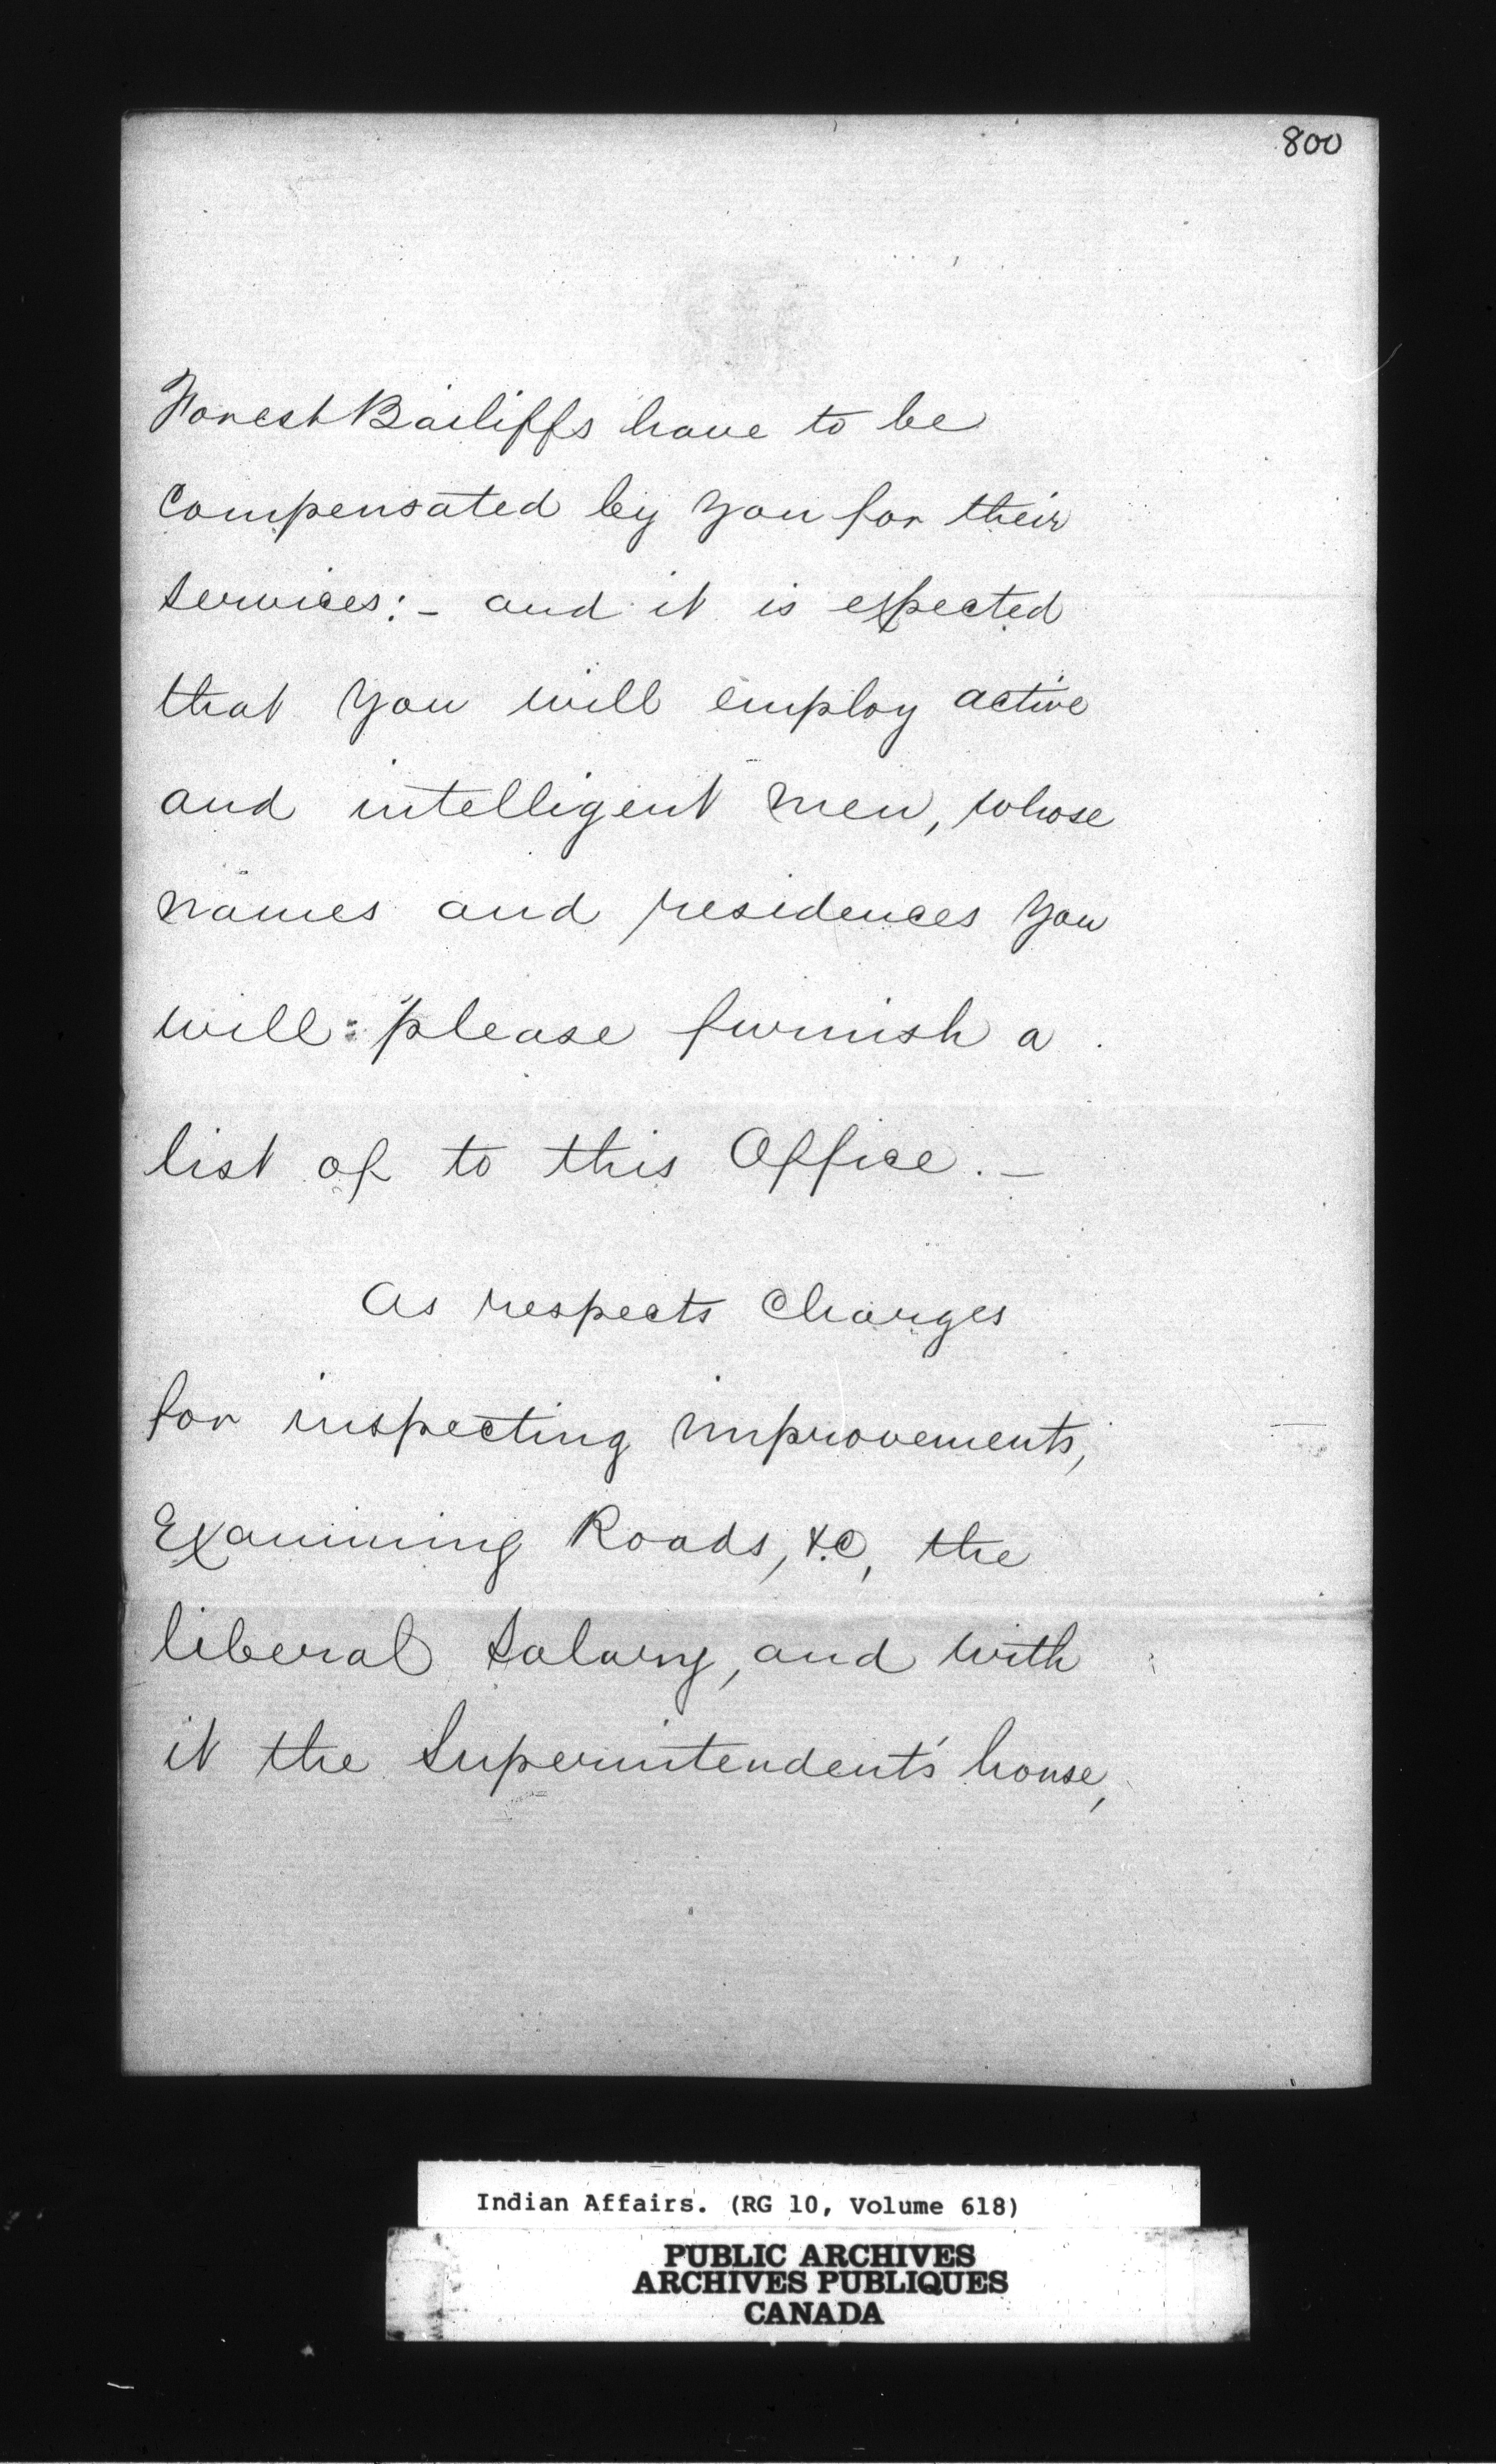 800
Forest Bailiffs have to be
Compensated by you for their
Services:- and it is expected
that you will employ active
and intelligent men, whose
names and residences you
will please furnish a
list of to this Office.-
As respects Charges
for inspecting improvements,
Examining Roads, &c, the
liberal Salary, and with
it the Superintendent's house,
Indian Affairs. (RG 10, Volume 618)
PUBLIC ARCHIVES
ARCHIVES PUBLIQUES
CANADA